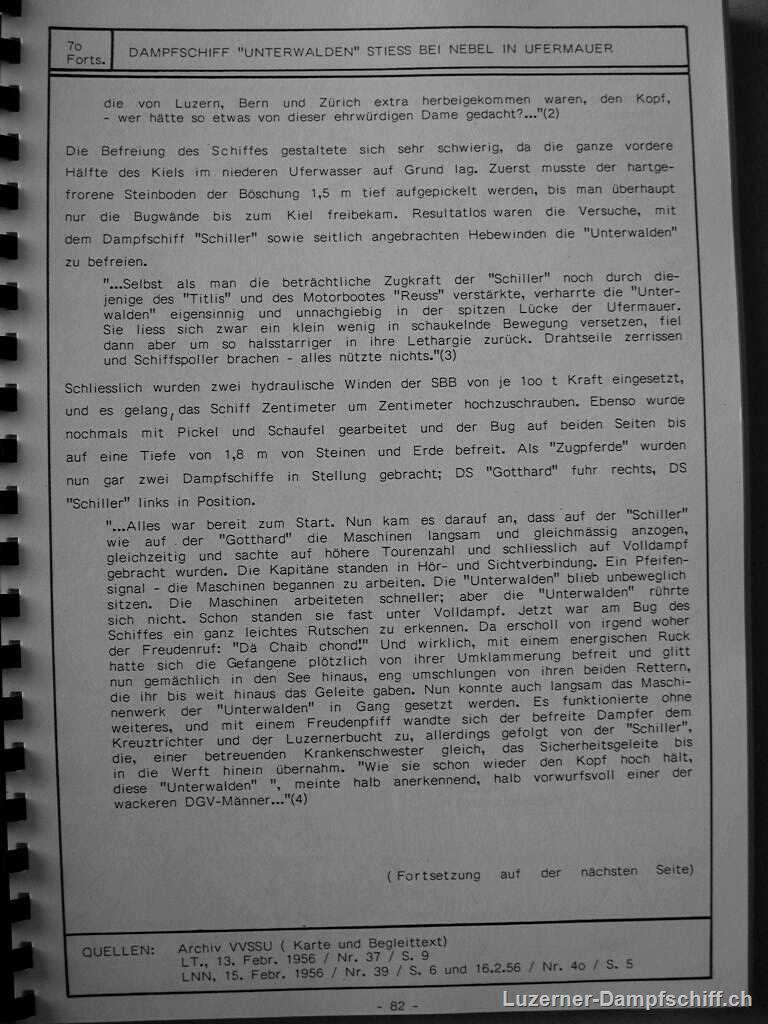 7o
Forts.
DAMPFSCHIFF "UNTERWALDEN" STIESS BEI NEBEL IN UFERMAUER
die von Luzern, Bern und Zürich extra herbeigekommen waren, den Kopf,
- wer hätte so etwas von dieser ehrwürdigen Dame gedacht?..."(2)
Die Befreiung des Schiffes gestaltete sich sehr schwierig, da die ganze vordere
Hälfte des Kiels im niederen Uferwasser auf Grund lag. Zuerst musste der hartge-
frorene Steinboden der Böschung 1,5 m tief aufgepickelt werden, bis man überhaupt
nur die Bugwände bis zum Kiel freibekam. Resultatlos waren die Versuche, mit
dem Dampfschiff "Schiller" sowie seitlich angebrachten Hebewinden die "Unterwalden"
zu befreien.
"...Selbst als man die beträchtliche Zugkraft der "Schiller" noch durch die-
jenige des "Titlis" und des Motorbootes "Reuss" verstärkte, verharrte die "Unter-
walden" eigensinnig und unnachgiebig in der spitzen Lücke der Ufermauer.
Sie liess sich zwar ein klein wenig in schaukelnde Bewegung versetzen, fiel
dann aber um so halsstarriger in ihre Lethargie zurück. Drahtseile zerrissen
und Schiffspoller brachen - alles nützte nichts."(3)
Schliesslich wurden zwei hydraulische Winden der SBB von je 1oo t Kraft eingesetzt,
und es gelang, das Schiff Zentimeter um Zentimeter hochzuschrauben. Ebenso wurde
nochmals mit Pickel und Schaufel gearbeitet und der Bug auf beiden Seiten bis
auf eine Tiefe von 1,8 m von Steinen und Erde befreit. Als "Zugpferde" wurden
nun gar zwei Dampfschiffe in Stellung gebracht; DS "Gotthard" fuhr rechts, DS
"Schiller" links in Position.
"...Alles war bereit zum Start. Nun kam es darauf an, dass auf der "Schiller"
wie auf der "Gotthard" die Maschinen langsam und gleichmässig anzogen,
gleichzeitig und sachte auf höhere Tourenzahl und schliesslich auf Volldampf
gebracht wurden. Die Kapitäne standen in Hör- und Sichtverbindung. Ein Pfeifen-
signal - die Maschinen begannen zu arbeiten. Die "Unterwalden" blieb unbeweglich
sitzen. Die Maschinen arbeiteten schneller; aber die "Unterwalden" rührte
sich nicht. Schon standen sie fast unter Volldampf. Jetzt war am Bug des
Schiffes ein ganz leichtes Rutschen zu erkennen. Da erscholl von irgend woher
der Freudenruf: "Dä Chaib chond!" Und wirklich, mit einem energischen Ruck
hatte sich die Gefangene plötzlich von ihrer Umklammerung befreit und glitt
nun gemächlich in den See hinaus, eng umschlungen von ihren beiden Rettern,
die ihr bis weit hinaus das Geleite gaben. Nun konnte auch langsam das Maschi-
nenwerk der "Unterwalden" in Gang gesetzt werden. Es funktionierte ohne
weiteres, und mit einem Freudenpfiff wandte sich der befreite Dampfer dem
Kreuztrichter und der Luzernerbucht zu, allerdings gefolgt von der "Schiller",
die, einer betreuenden Krankenschwester gleich, das Sicherheitsgeleite bis
in die Werft hinein übernahm. "Wie sie schon wieder den Kopf hoch hält,
diese "Unterwalden" ", meinte halb anerkennend, halb vorwurfsvoll einer der
wackeren DGV-Männer..."(4)
(Fortsetzung auf der nächsten Seite)
QUELLEN: Archiv VVSSU ( Karte und Begleittext)
LT., 13. Febr. 1956 / Nr. 37 / S. 9
LNN, 15. Febr. 1956 / Nr. 39 / S. 6 und 16.2.56 / Nr. 4o / S. 5
- 82 -
Luzerner-Dampfschiff.ch